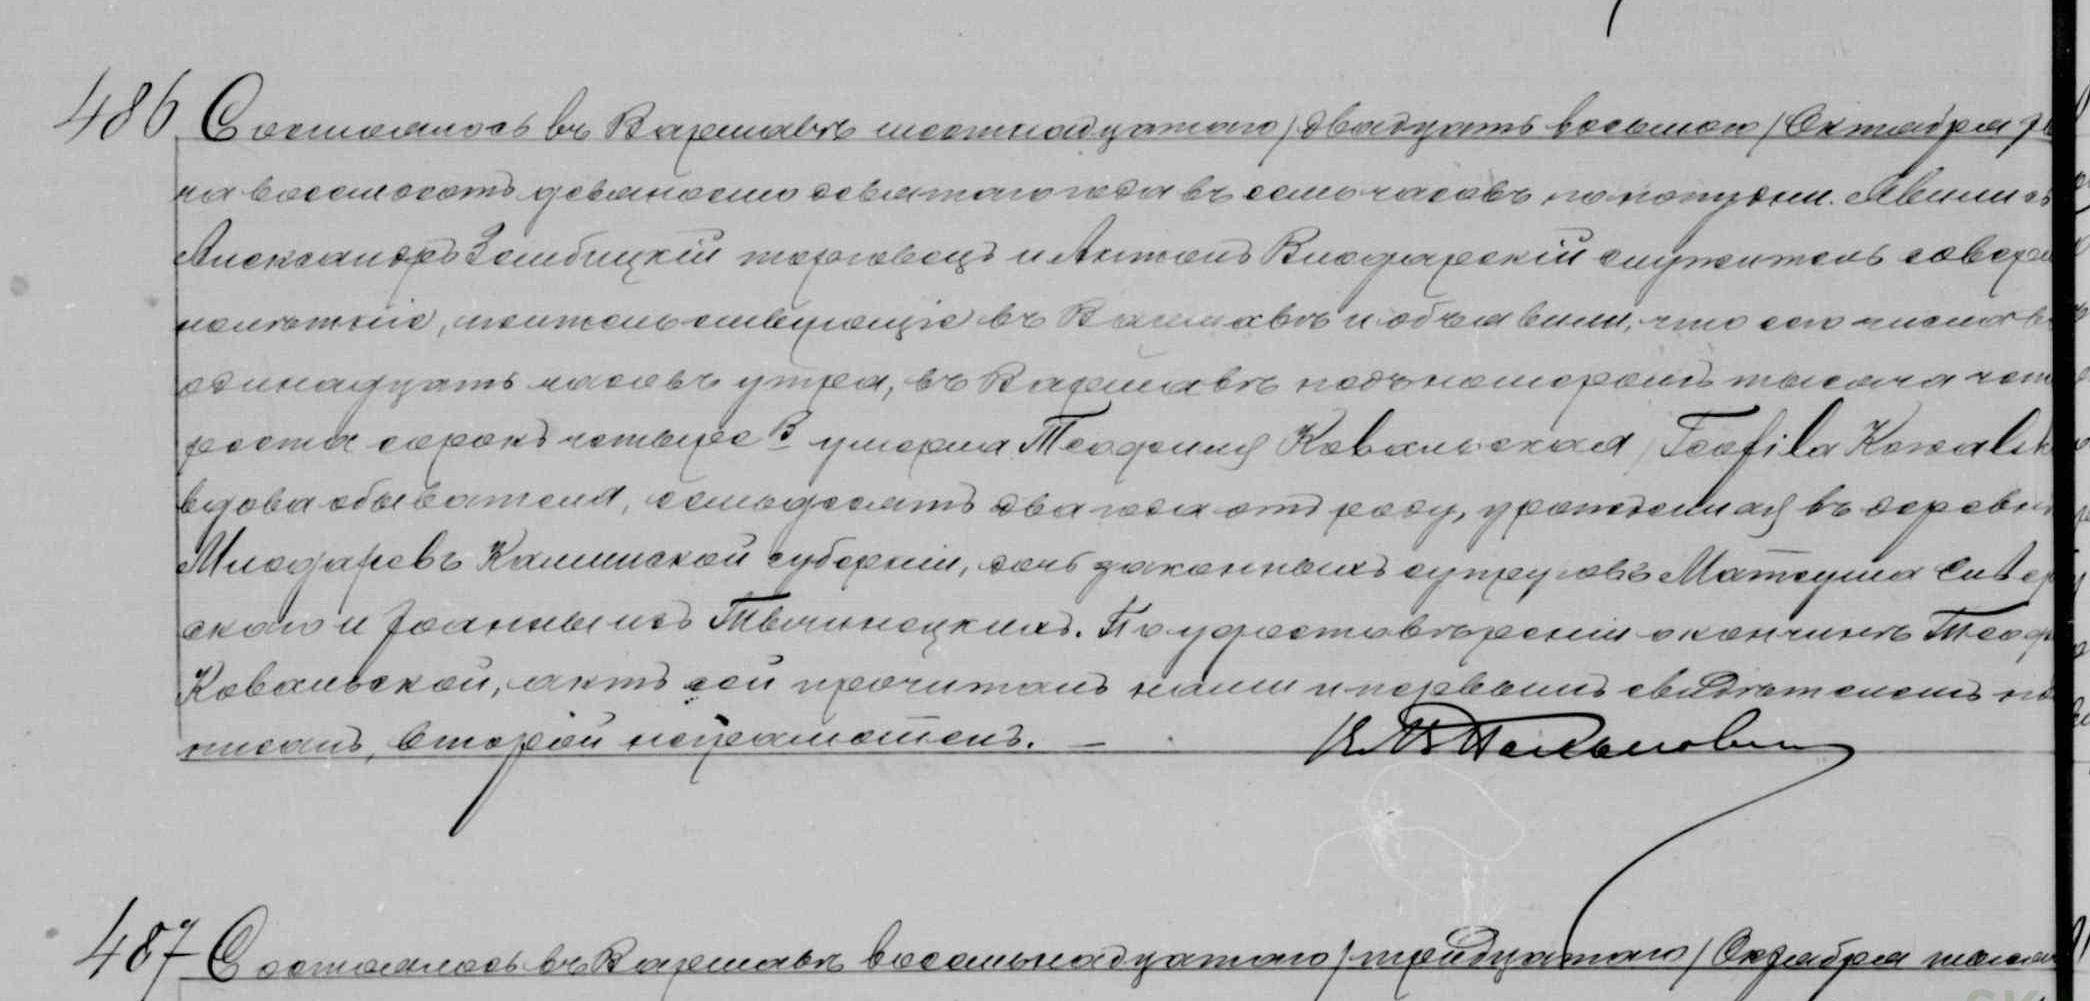 486 Состоялось въ Варшавѣ шестнадцатаго /двадцать восьмого/ Октября
восемьсотъ девяносто девятаго года въ семь часовъ по полудни. Явились
Александръ Замбицкій торговецъ и Антонъ служитель совер
нолѣтніе, жительствующіе въ Варшавѣ и объявили, что сего числа въ
одинадцать часовъ утра, въ Варшавѣ подъ номеромъ тысяча чет
реста сорокъ четыре В умерла Теофиля Ковальская /Teofila Kowalsk
вдова обывателя, семьдесятъ два года отъ роду, урожденная въ деревнѣ
Калишской губерніи, дочь законныхъ супруговъ Матеуша
скаго и Іоанны изъ. По удостовѣреніи о кончинѣ Теоф
Ковальской, актъ сей прочитанъ нами и первымъ свидѣтелемъ под
писанъ, второй неграмотенъ. —
487 Состоялось въ Варшавѣ восемьнадцатаго /тридцатаго/ Октября тысяча